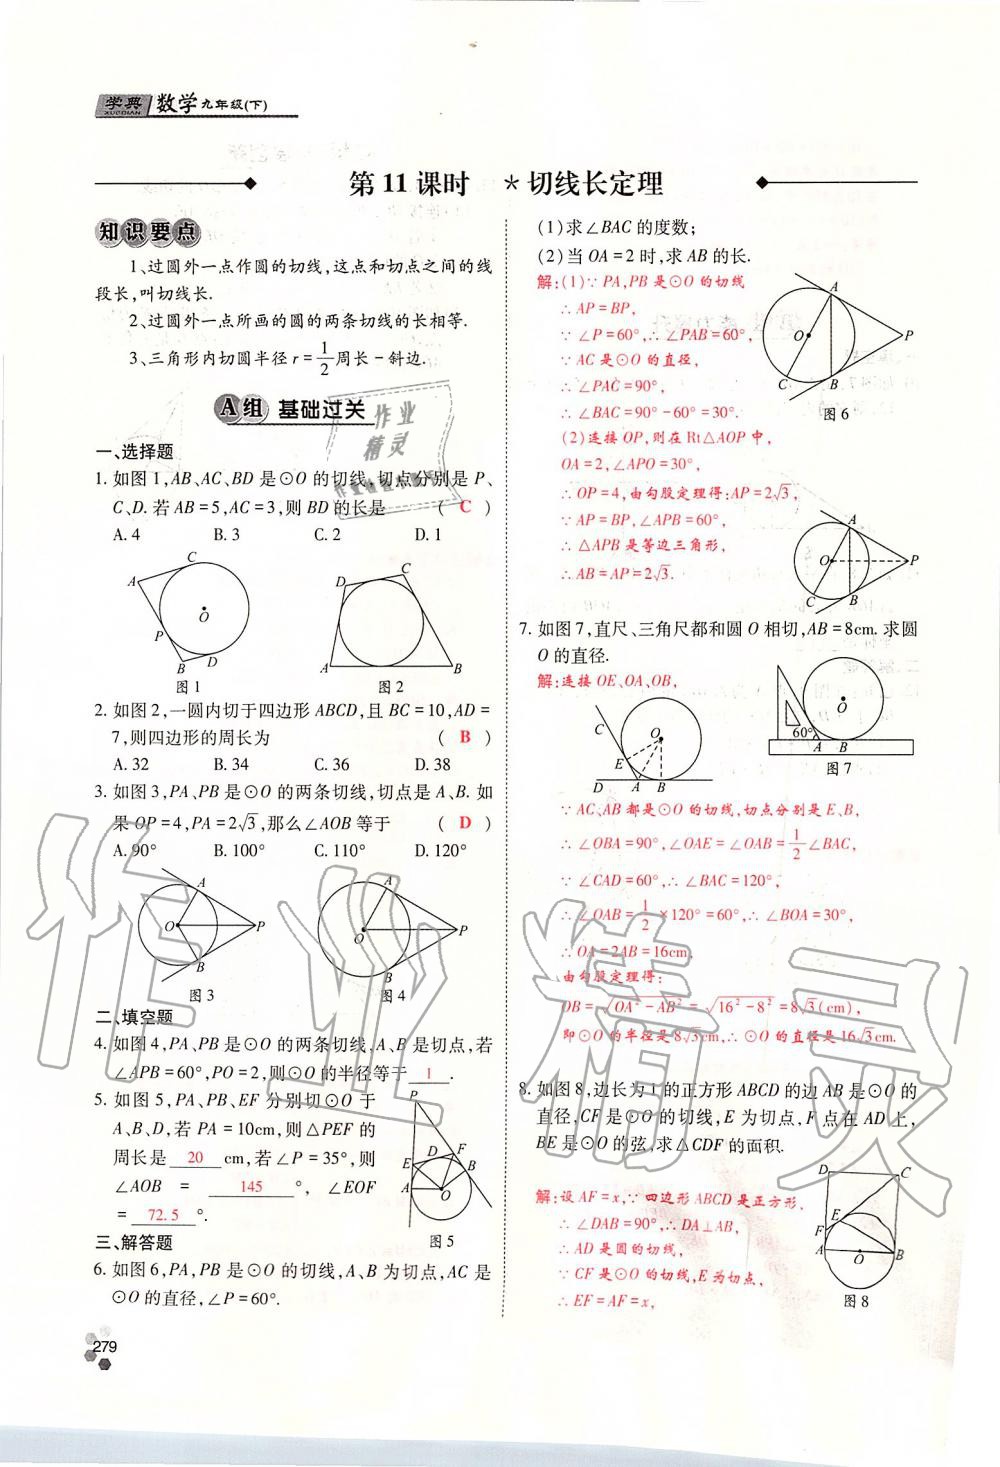 学典 数学 九年级(下)
XUEDIAN
第11课时 *切线长定理
知识要点
1、过圆外一点作圆的切线,这点和切点之间的线
段长,叫切线长.
2、过圆外一点所画的圆的两条切线的长相等.
3、三角形内切圆半径 r = 1/2 周长 − 斜边.
A组 基础过关
一、选择题
1. 如图 1,AB、AC、BD 是⊙O 的切线,切点分别是 P、
C、D. 若 AB = 5,AC = 3,则 BD 的长是 ( C )
A. 4 B. 3 C. 2 D. 1
A C O P B D
图 1
D C A B
图 2
2. 如图 2,一圆内切于四边形 ABCD,且 BC = 10,AD =
7,则四边形的周长为 ( B )
A. 32 B. 34 C. 36 D. 38
3. 如图 3,PA、PB 是⊙O 的两条切线,切点是 A、B. 如
果 OP = 4,PA = 2√3,那么∠AOB 等于 ( D )
A. 90° B. 100° C. 110° D. 120°
A O P B
图 3
A O P B
图 4
二、填空题
4. 如图 4,PA、PB 是⊙O 的两条切线,A、B 是切点,若
∠APB = 60°,PO = 2,则⊙O 的半径等于 1 .
5. 如图 5,PA、PB、EF 分别切⊙O 于
A、B、D,若 PA = 10cm,则△PEF 的
周长是 20 cm,若∠P = 35°,则
∠AOB = 145 °,∠EOF
= 72.5 °.
P D F E B A O
图 5
三、解答题
6. 如图 6,PA、PB 是⊙O 的切线,A、B 为切点,AC 是
⊙O 的直径,∠P = 60°.
279
(1)求∠BAC 的度数;
(2)当 OA = 2 时,求 AB 的长.
解:(1)∵ PA、PB 是⊙O 的切线
∴ AP = BP,
∵ ∠P = 60°,∴ ∠PAB = 60°,
∵ AC 是⊙O 的直径,
∴ ∠PAC = 90°,
∴ ∠BAC = 90° − 60° = 30°.
(2)连接 OP,则在 Rt△AOP 中,
OA = 2,∠APO = 30°,
∴ OP = 4,由勾股定理得:AP = 2√3,
∵ AP = BP,∠APB = 60°,
∴ △APB 是等边三角形,
∴ AB = AP = 2√3.
A O P C B
图 6
A O P C B
7. 如图 7,直尺、三角尺都和圆 O 相切,AB = 8cm. 求圆
O 的直径.
解:连接 OE、OA、OB,
C O E D A B
O 60° A B
图 7
∵ AC、AB 都是⊙O 的切线,切点分别是 E、B,
∴ ∠OBA = 90°,∠OAE = ∠OAB = 1/2 ∠BAC,
∵ ∠CAD = 60°,∴ ∠BAC = 120°,
∴ ∠OAB = 1/2 × 120° = 60°,∴ ∠BOA = 30°,
∴ OA = 2AB = 16cm,
由勾股定理得:
OB = √(OA² − AB²) = √(16² − 8²) = 8√3(cm),
即⊙O 的半径是 8√3cm,∴ ⊙O 的直径是 16√3cm.
8. 如图 8,边长为 1 的正方形 ABCD 的边 AB 是⊙O 的
直径,CF 是⊙O 的切线,E 为切点,F 点在 AD 上,
BE 是⊙O 的弦,求△CDF 的面积.
解:设 AF = x,∵ 四边形 ABCD 是正方形,
∴ ∠DAB = 90°,∴ DA⊥AB,
∴ AD 是圆的切线,
∵ CF 是⊙O 的切线,E 为切点,
∴ EF = AF = x,
D C E F A O B
图 8
作业精灵
作业
精灵